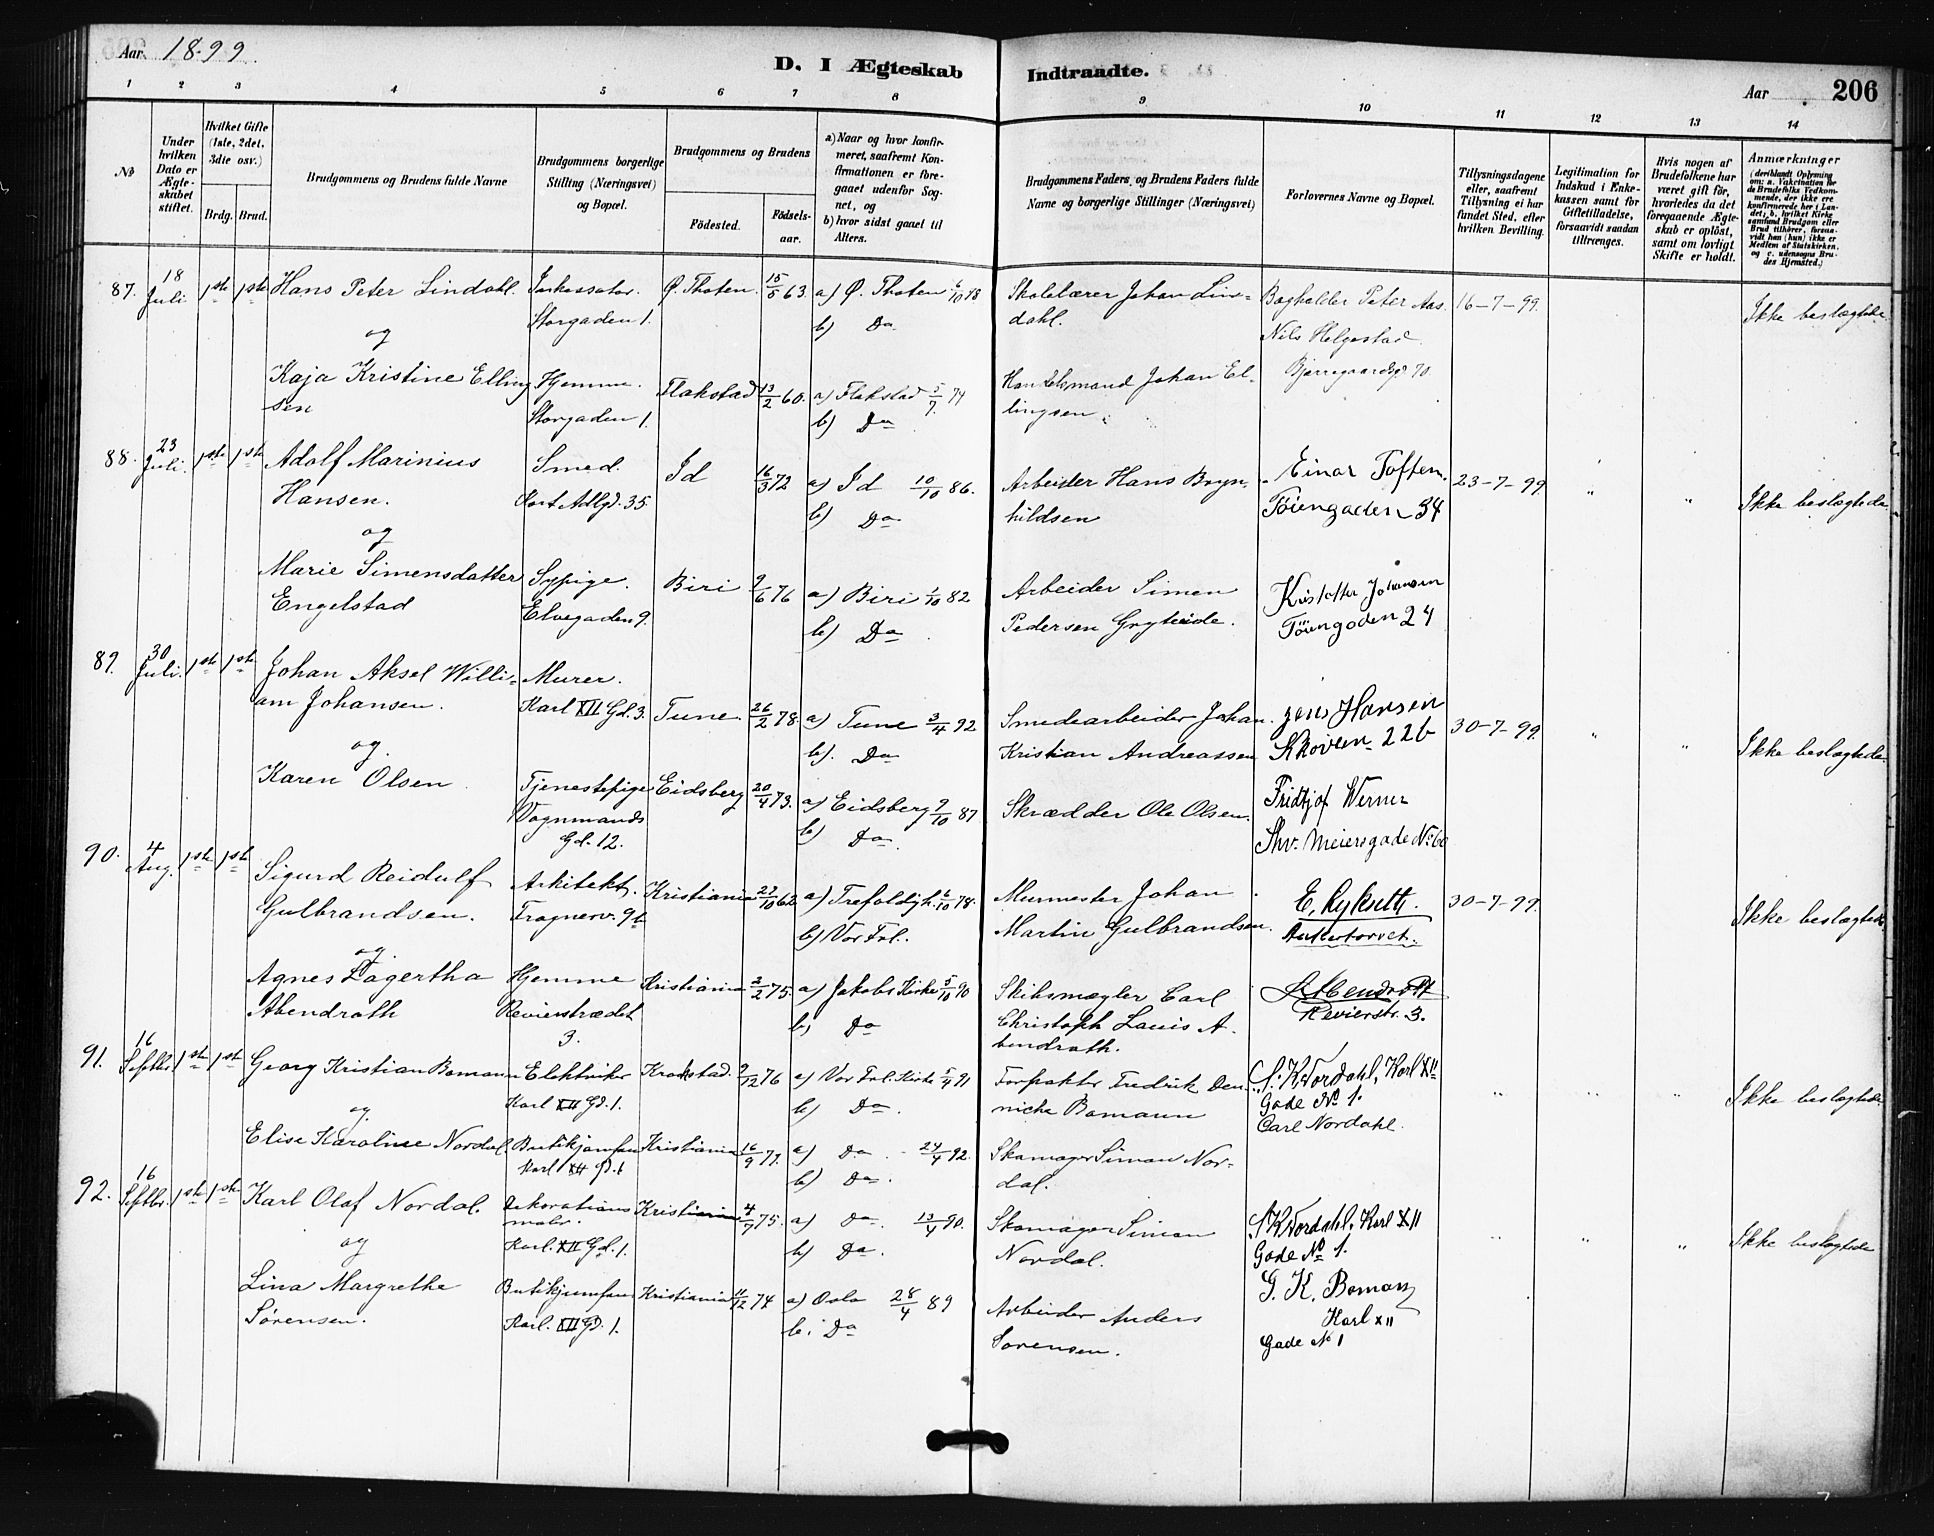 Aar 1899.
D. I Ægteskab Indtraadte.
Aar 206
1 2 3 4 5 6 7 8 9 10 11 12 13 14
No
Under hvilken Dato er Ægteskabet stiftet.
Hvilket Gifte (1ste, 2det, 3die osv.)
Brdg. Brud.
Brudgommens og Brudens fulde Navne
Brudgommens borgerlige Stilling (Næringsvei) og Bopæl.
Brudgommens og Brudens
Fødested. Fødselsaar.
a) Naar og hvor konfirmeret, saafremt Konfirmationen er foregaaet udenfor Sognet, og
b) hvor sidst gaaet til Alters.
Brudgommens Faders og Brudens Faders fulde Navne og borgerlige Stillinger (Næringsvei)
Forlovernes Navne og Bopæl.
Tillysningsdagene eller, saafremt Tillysning ei har fundet Sted, efter hvilken Bevilling.
Legitimation for Indskud i Enkekassen samt for Giftetilladelse, forsaavidt saadan tiltrænges.
Hvis nogen af Brudefolkene har været gift før, hvorledes da det foregaaende Ægteskab er opløst, samt om lovligt Skifte er holdt.
Anmærkninger (deriblandt Oplysning om: a. Vakcination for de Brudefolks Vedkommende, der ikke ere konfirmerede her i Landet; b. hvilket Kirkesamfund Brudgom eller Brud tilhører, forsaavidt han (hun) ikke er Medlem af Statskirken, og c. udensogns Brudes Hjemsted.)
87. 18 Juli 1ste 1ste Hans Peter Lindahl. Inkassator. Storgaden 1. Ø. Thoten. 15/5 63. a) Ø. Thoten 6/10 78 b) Do Skolelærer Johan Lindahl. Bogholder Peter Aas. Nils Helgestad Bjerregaardsgd 70 16-7-99. Ikke beslægtede
og
Kaja Kristine Ellingsen Hjemme. Storgaden 1. Flakstad 13/2 60. a) Flakstad 5/7 74 b) Do Handelsmand Johan Ellingsen.
88. 23 Juli. 1ste 1ste Adolf Marinius Hansen. Smed. 35. Id 16/3 72 a) Id 10/10 86. b) Do Arbeider Hans Brynhildsen Einar Toften. Töiengaden 34 23-7-99. " " Ikke beslægtede
og
Marie Simensdatter Engelstad Sypige. Elvegaden 9. Biri 9/6 76 a) Biri 1/10 82 b) Do Arbeider Simen Pedersen Gryteide. Kristoffer Johansen Töiengaden 24
89. 30 Juli. 1ste 1ste Johan Aksel William Johansen. Murer. Karl XII Gd. 3. Tune. 26/2 78. a) Tune 3/4 92 b). Do Smedearbeider Johan Kristian Andreassen Jens Hansen Skoveien 22b 30-7-99. " " Ikke beslægtede
og.
Karen Olsen Tjenestepige Vognmands Gd. 12. Eidsberg 20/4 73. a) Eidsberg 9/10 87 b) Do. Skrædder Ole Olsen. Fridtjof Werner Thv. Meiersgade No 60
90. 4 Aug. 1ste 1ste Sigurd Reidulf Gulbrandsen. Arkitekt. Frognerv. 9b Kristiania 27/10 62 a) Trefoldigh. 6/10 78. b) Vor Frl. Murmester Johan Martin Gulbrandsen. Ankertorvet. 30-7-99. Ikke beslægtede
og.
Agnes Lagertha Abendroth Hjemme Revierstrædet 3. Kristiania 2/2 75. a) Jakobs Kirke 5/10 90 b) Do Skibsmægler Carl Christoph Louis Abendroth. Abendroth Revierstr. 3.
91. 16 Septbr. 1ste 1ste Georg Kristian Bomann Elektriker Karl XII Gd. 1. Krokstad. 9/12 76 a) Vor Frl. Kirke 5/4 91 b) Do. Forpakter Fredrik Bomann S. K. Nordahl, Karl XII Gade No 1. Carl Nordahl. " " " Ikke beslægtede
og
Elise Karoline Nordal. Butikjomfru Karl XII Gd. 1 Kristiania 16/9 77. a) Do. 24/4 92. b) Do. Skomager Simon Nordal.
92. 16 Septbr. 1ste 1ste Karl Olaf Nordal. Dekorationsmaler. Karl. XII Gd. 1. Kristiania 4/9 75. a) Do. 13/4 90. b) Do. Skomager Simon Nordal. S. K. Nordahl, Karl XII Gade No 1. " " " Ikke beslægtede
og
Lina Margrethe Sørensen. Butikjomfru Karl. XII Gd. 1. Kristiania 11/12 74 a) Oslo 28/4 89 b. Do Arbeider Anders Sørensen. G. K. Boman Karl XII Gade No 1